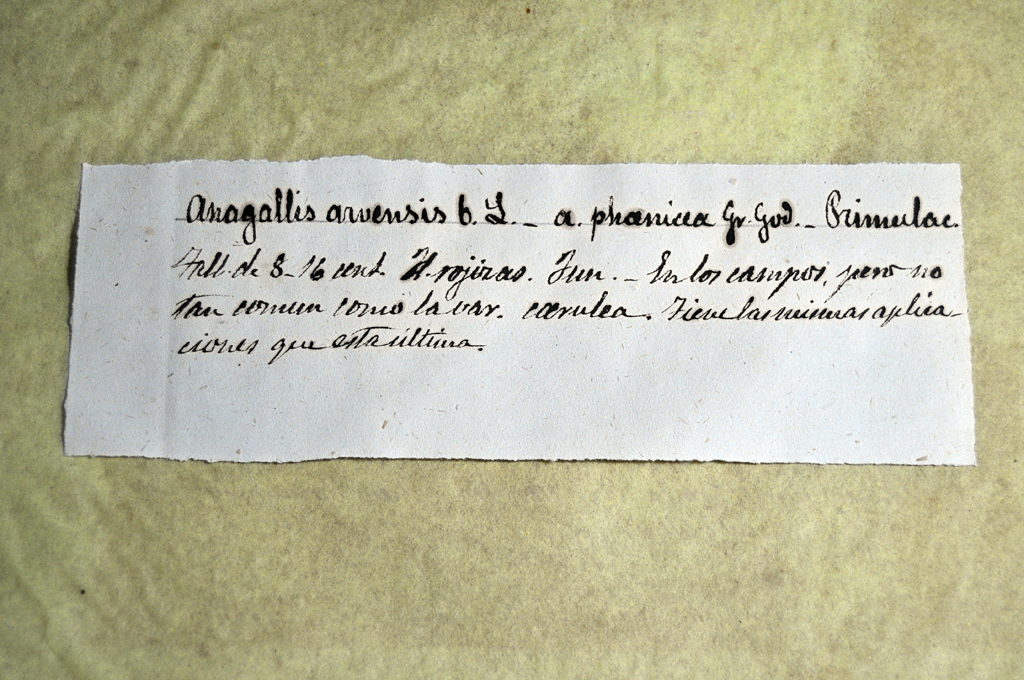 Anagallis arvensis b. L. _ a. phœnicea Gr. God. _ Primulac.
Tall. de 8-16 cent. Fl. rojizas. Jun. _ En los campos, pero no
tan comun como la var. cærulea. Tiene las mismas aplica-
ciones que esta última.